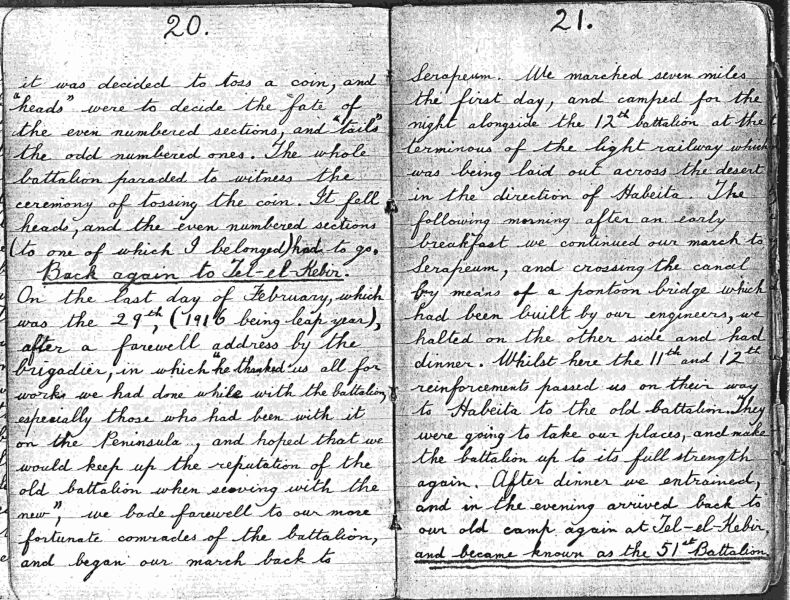 20.
it was decided to toss a coin, and
"heads" were to decide the fate of
the even numbered sections, and "tails"
the odd numbered ones. The whole
battalion paraded to witness the
ceremony of tossing the coin. It fell
heads, and the even numbered sections
(to one of which I belonged) had to go.
Back again to Tel-el-Kebir.
On the last day of February, which
was the 29th, (1916 being leap year),
after a farewell address by the
brigadier, in which "he thanked us all for
works we had done while with the battalion,
especially those who had been with it
on the Peninsula, and hoped that we
would keep up the reputation of the
old battalion when serving with the
new", we bade farewell to our more
fortunate comrades of the battalion,
and began our march back to
21.
Serapeum. We marched seven miles
the first day, and camped for the
night alongside the 12th battalion at the
terminous of the light railway which
was being laid out across the desert
in the direction of Habeita. The
following morning after an early
breakfast we continued our march to
Serapeum, and crossing the canal
by means of a pontoon bridge which
had been built by our engineers, we
halted on the other side and had
dinner. Whilst here the 11th and 12th
reinforcements passed us on their way
to Habeita to the old battalion. They
were going to take our places, and make
the battalion up to its full strength
again. After dinner we entrained,
and in the evening arrived back to
our old camp again at Tel-el-Kebir,
and became known as the 51st Battalion